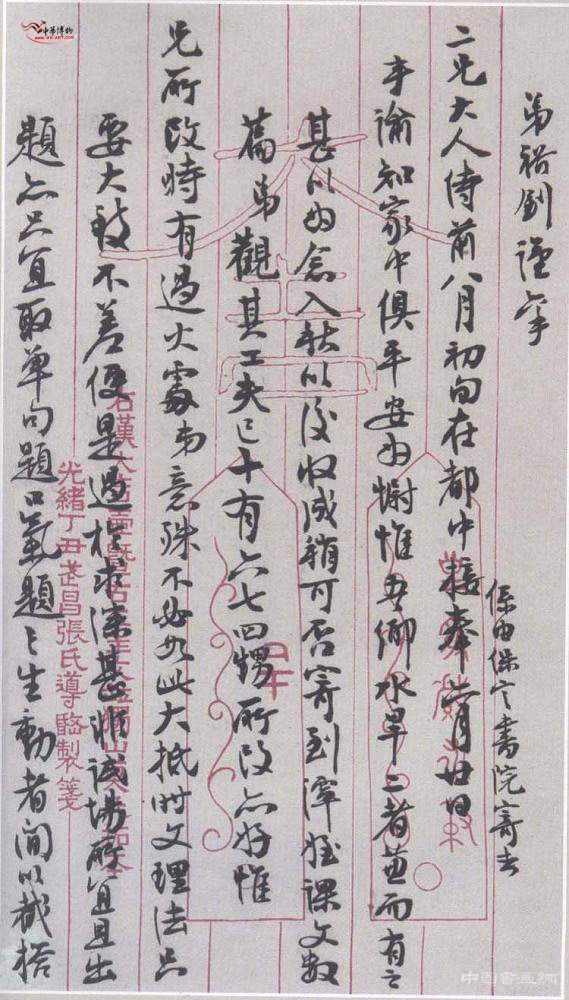 弟裕釗謹
係由保定書院寄去
二兄大人侍前八月初旬在都中接奉月廿日
手諭知家中俱平安為慰惟吾鄉水旱二者並而有之
甚以為念入秋以後收成稍可否寄到澤姪課文數
篇弟觀其工夫已十有六七四甥所改亦好惟
兄所改時有過火處弟意殊不必如此大抵時文理法只
要大致不差便是過於求深甚非試場所宜且出
題亦只宜取單句題口氣題之生動者間以截搭
光緒丁丑武昌張氏導谿製箋
中華博物
中国書画網